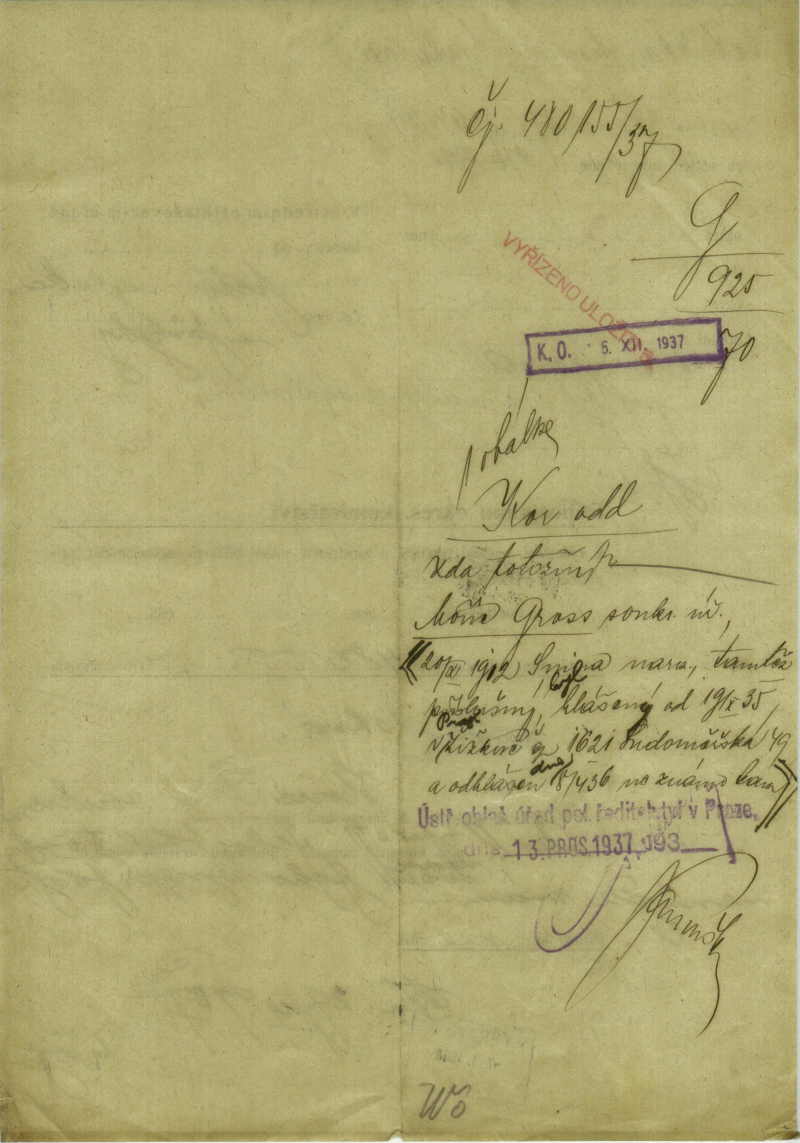 Čj. 480155/37
G
920
70
VYŘÍZENO ULOŽ
K. O. 6. XII. 1937
obálke
Kor odd
zda totožný
Gross soukr. úř.,
20/XI 1912 nar., tamtéž
příslušný, hlášený od 19/X 35
v Žižkově čp 1621 49
a odhlášen dne 8/4 36 neznámo kam
Ústř. ohlaš. úřad pol. ředitelství v Praze,
dne 13. PROS. 1937 193